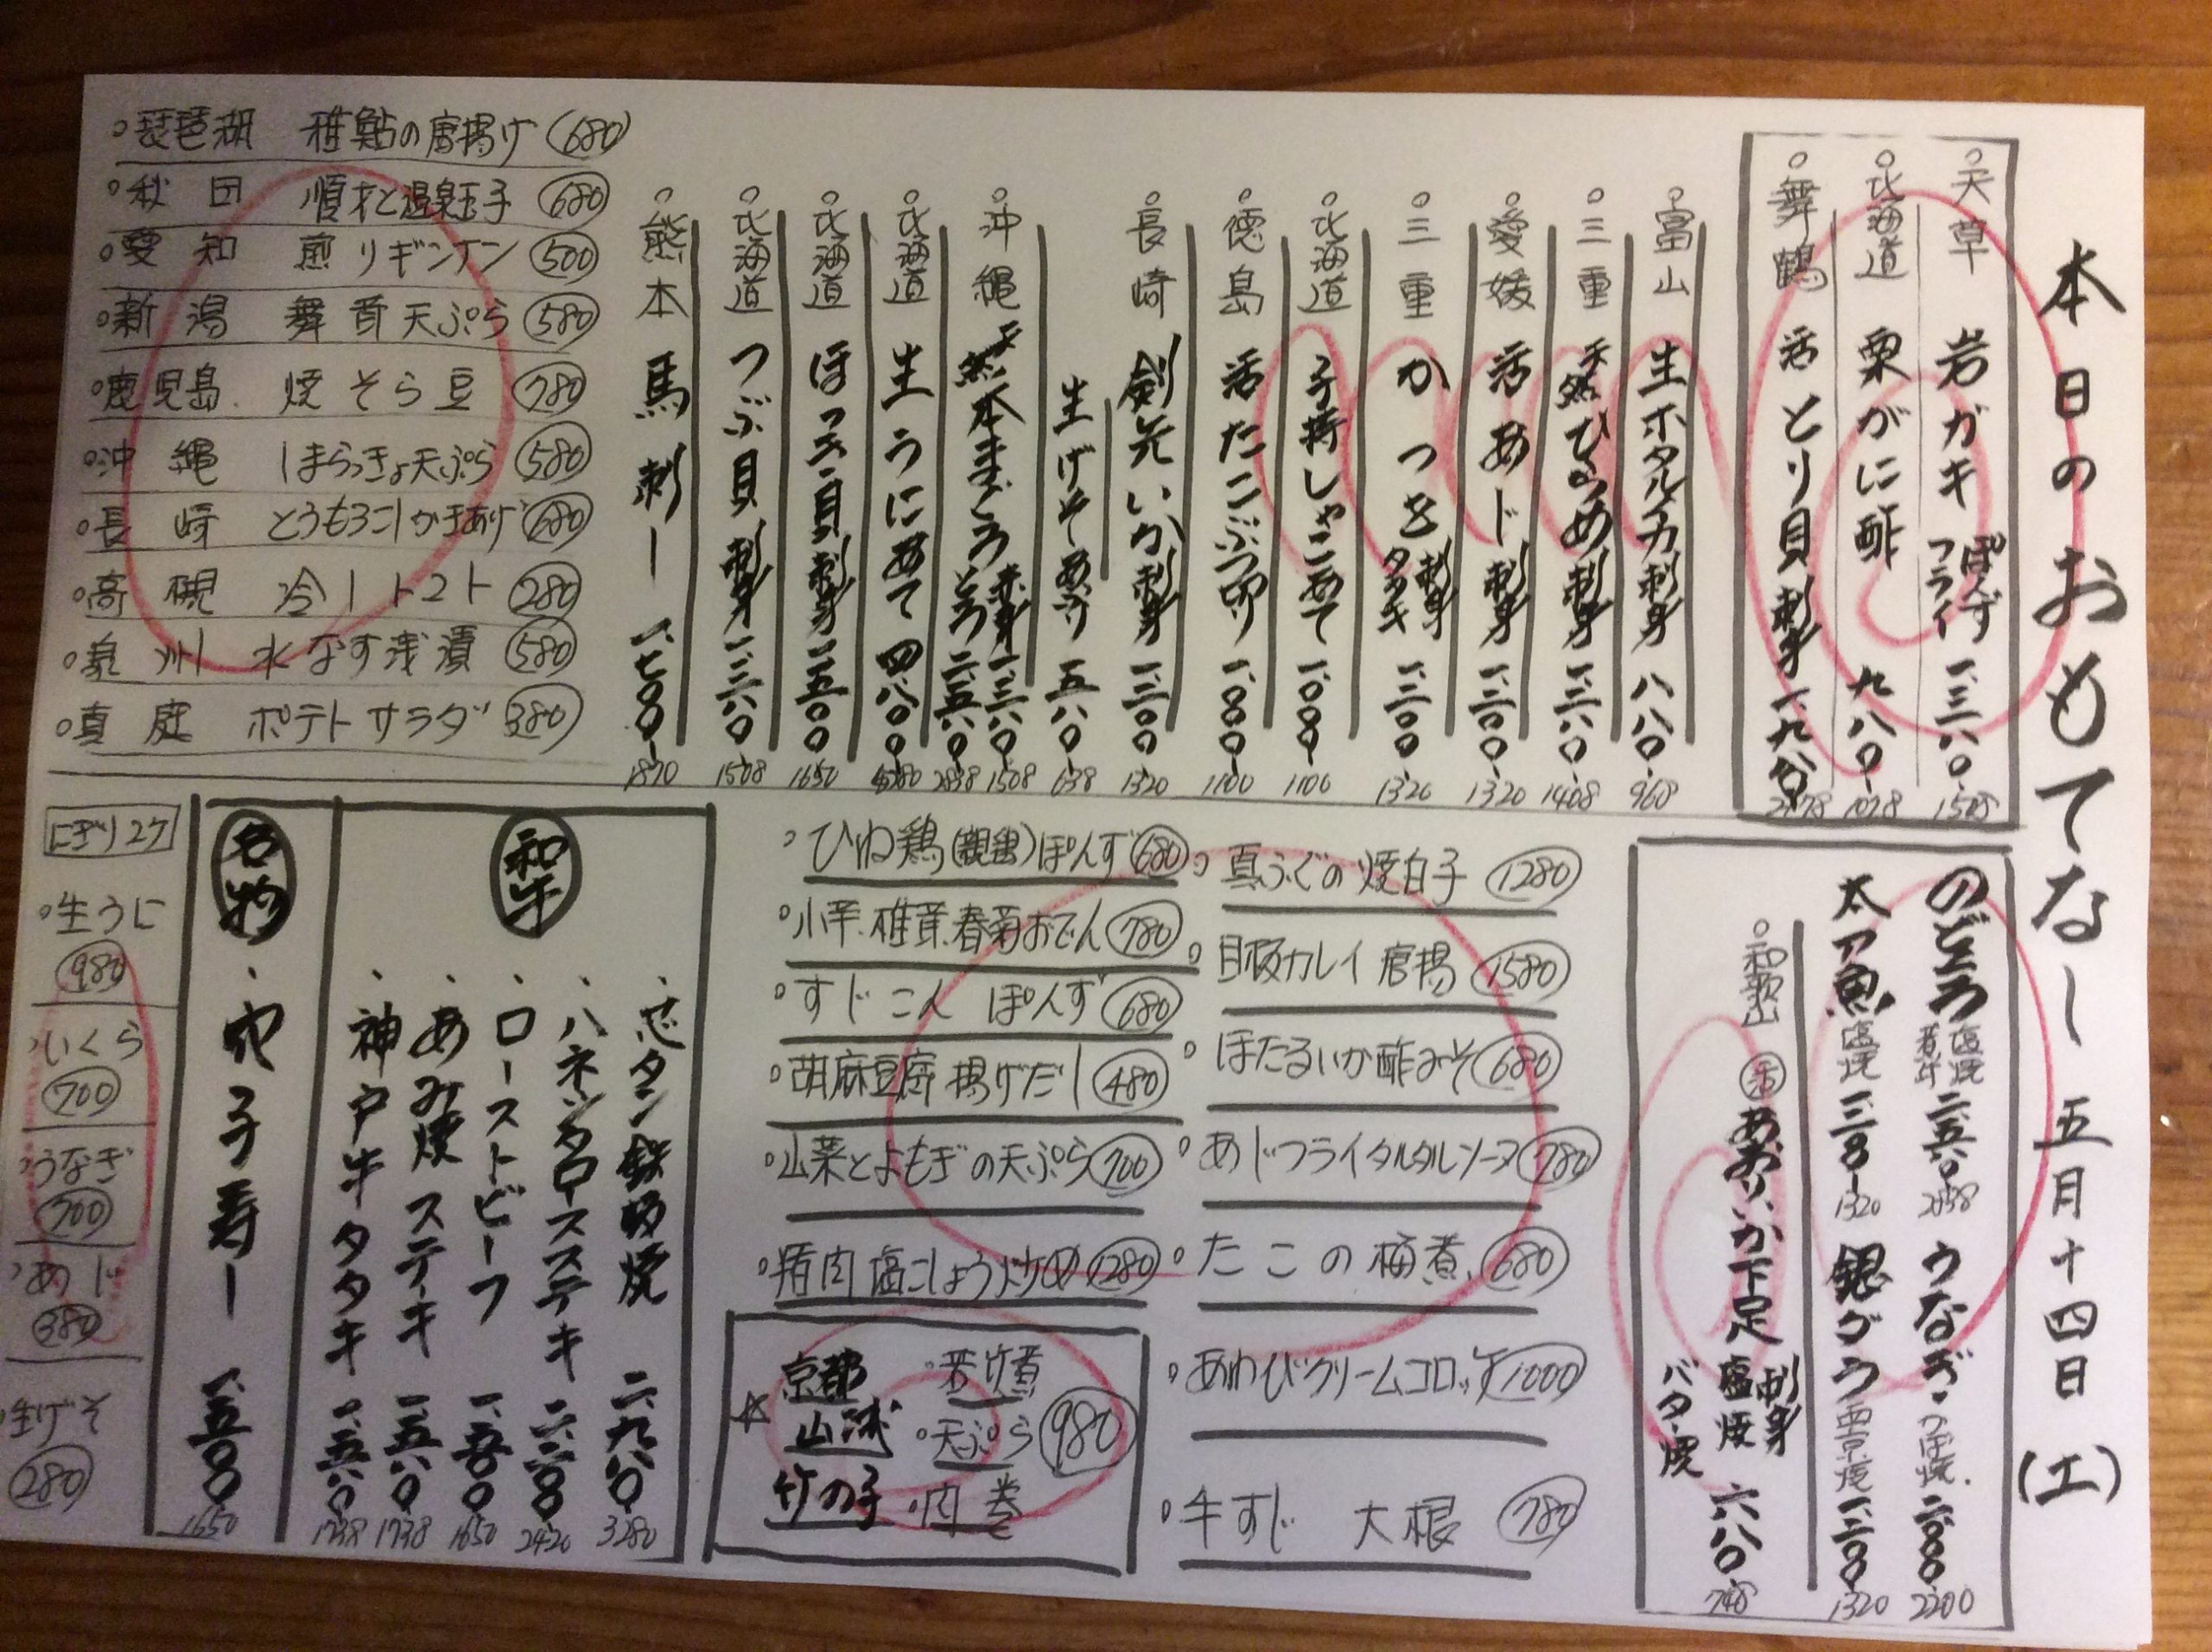 本日のおもてなし 五月十四日(土)
天草 岩ガキ ぽんず フライ 一、三八〇 1508
北海道 栗がに酢 九八〇 1078
舞鶴 活とり貝刺身 一、九八〇 2178
富山 生ホタルイカ刺身 八八〇 968
三重 天然ひらめ刺身 一、二八〇 1408
愛媛 活あじ刺身 一、二〇〇 1320
三重 かつを 刺身 タタキ 一、二〇〇 1320
北海道 子持しゃこあて 一、〇〇〇 1100
徳島 活たこぶつ切り 一、〇〇〇 1100
長崎 剣先いか刺身 一、二〇〇 1320
生げそあぶり 五八〇 638
沖縄 天然本まぐろ 赤身 一、三八〇 1508 とろ 二、五八〇 2838
北海道 生うにあて 四、八〇〇 5280
北海道 ほっき貝刺身 一、五〇〇 1650
北海道 つぶ貝刺身 一、三八〇 1508
熊本 馬刺し 一、七〇〇 1870
琵琶湖 稚鮎の唐揚げ 680
秋田 順才と温泉玉子 680
愛知 煎りギンナン 500
新潟 舞茸天ぷら 580
鹿児島 焼そら豆 780
沖縄 しまらっきょ天ぷら 580
長崎 とうもろこしかきあげ 680
高槻 冷しトマト 280
泉州 水なす浅漬 580
真庭 ポテトサラダ 380
のどぐろ 塩焼 煮汁 二、五八〇 2838 うなぎ かば焼 二、〇〇〇 2200
太ア魚 塩焼 一、二〇〇 1320 銀ダラ 西京焼 一、二〇〇 1320
和歌山 活 あおりいか下足 刺身 塩焼 バター焼 六八〇 748
真ふぐの焼白子 1280
目板カレイ唐揚 1580
ほたるいか酢みそ 680
あじフライタルタルソース 780
たこの梅煮 680
あわびクリームコロッケ 1000
牛すじ 大根 780
ひね鶏(親鶏)ぽんず 680
小芋、椎茸、春菊おでん 780
すじこん ぽんず 680
胡麻豆腐揚げだし 480
山菜とよもぎの天ぷら 700
猪肉塩こしょう炒め 1280
☆ 京都 山城 竹の子 若竹煮 天ぷら 肉巻 980
和牛
芯タン鉄板焼 二、九八〇 3280
ハネシタロースステキ 二、二〇〇 2420
ローストビーフ 一、五〇〇 1650
あみ焼ステーキ 一、五八〇 1738
神戸牛タタキ 一、五八〇 1738
名物
穴子寿し 一、五〇〇 1650
にぎり2ケ
生うに 980
いくら 700
うなぎ 700
あじ 380
生げそ 280